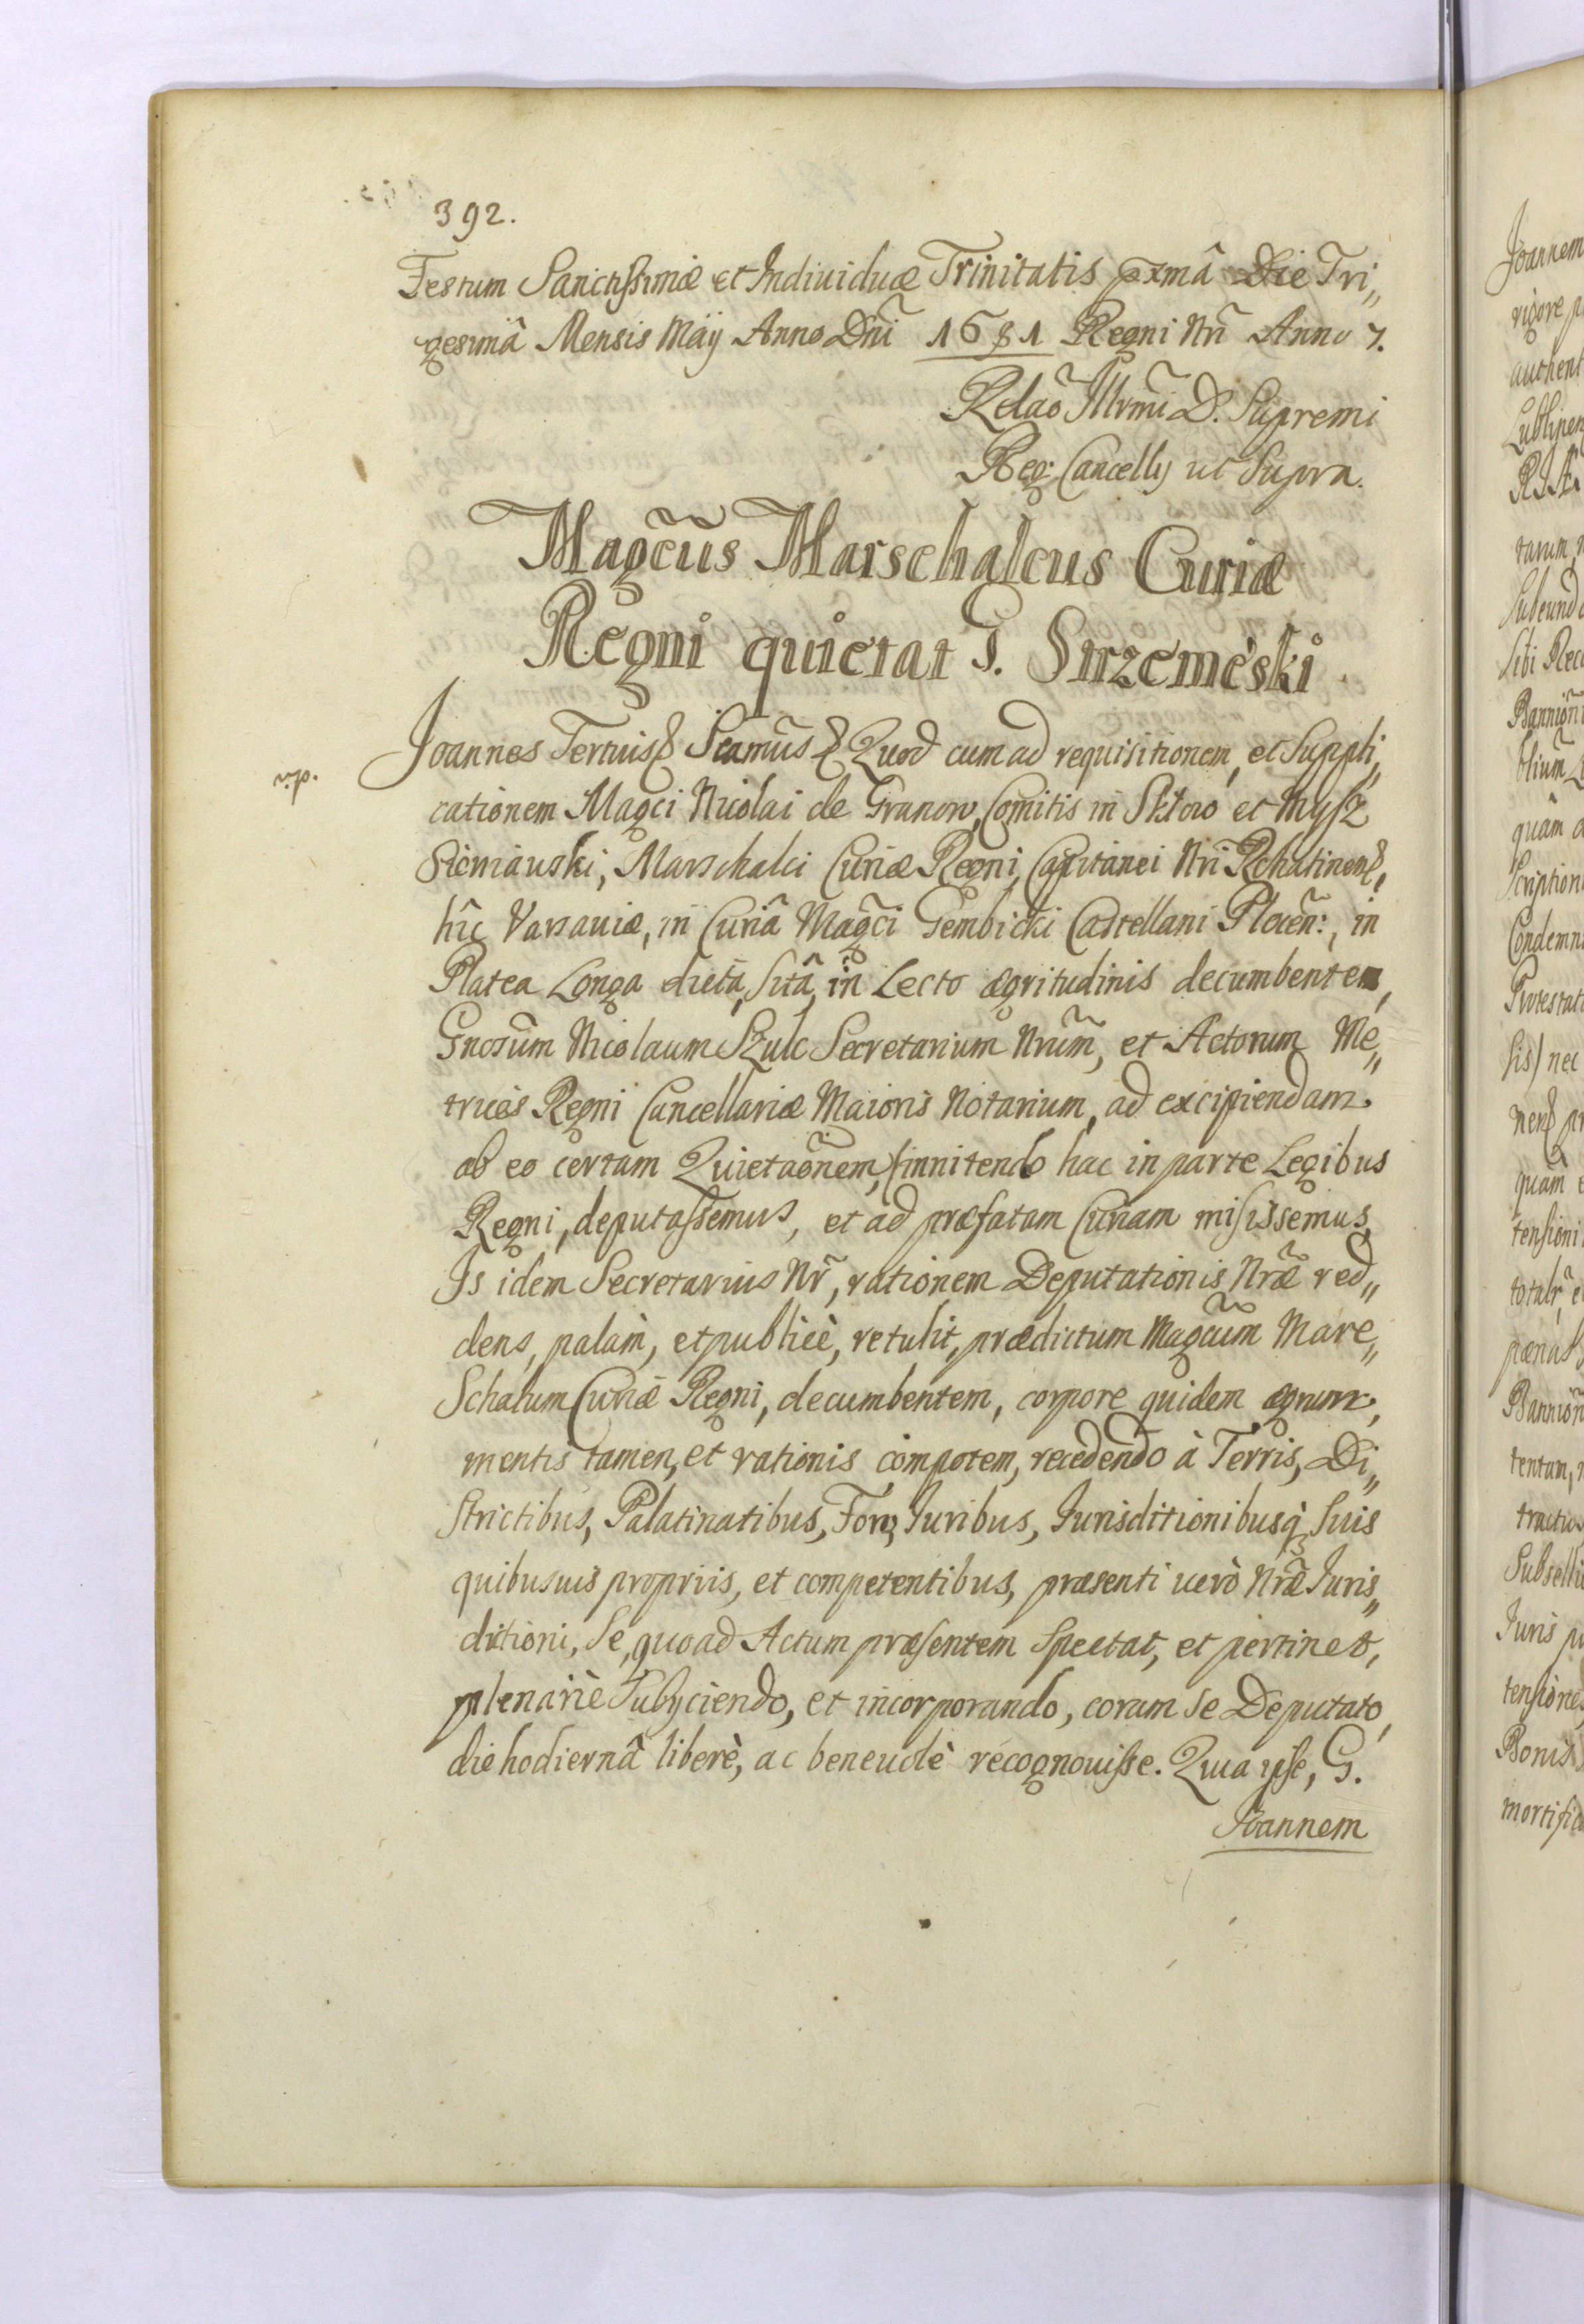 392.
Festum Sanctissimæ et Indiuiduæ Trinitatis pxmâ Die Tri„
gesimâ Mensis Maÿ Anno Dñi 1681 Regni Nri Anno 7.
Relaõ Illrmi D. Supremi
Reg: Cancellÿ ut Supra.
Magcũs Marschalcus Curiæ
Regni quietat G. Strzemeski
Joannes Tertius Quod cum ad requisitionem, et Suppli„
cationem Magci Nicolai de Granow, Comitis in et Mysz
Sieniauski, Marschalci Curiæ Regni, Capitanei Nri Rohatinens,
hîc Varsauiæ, in Curiâ Magci Gembicki Castellani Plocen:, in
Platea Longa dictâ, sitâ, in Lecto ægritudinis decumbentem,
Gnosum Nicolaum Szulc Secretarium Nrum, et Actorum Me„
trices Regni Cancellariæ Maioris Notarium, ad excipiendam
ab eo certam Quietaõnem, innitendo hac in parte Legibus
Regni, deputassemus, et ad præfatam Curiam misissemus,
Is idem Secretarius Nr, rationem Deputationis Nræ red„
dens, palàm, et publicè, retulit, prædictum Magcum Mare„
Schalcum Curiæ Regni, decumbentem, corpore quidem ægrum,
mentis tamen, et rationis compotem, recedendo à Terris, Di„
strictibus, Palatinatibus, Foro, Juribus, Jurisditionibusq Suis
quibusuis proprÿs, et competentibus, præsenti uerò Nræ Juris„
ditioni, Se, quoad Actum præsentem Spectat, et pertinet,
plenariè Subÿciendo, et incorporando, coram se Deputato,
die hodiernâ liberè, ac beneuolè recognouisse. Quia ipse, G.
Joannem